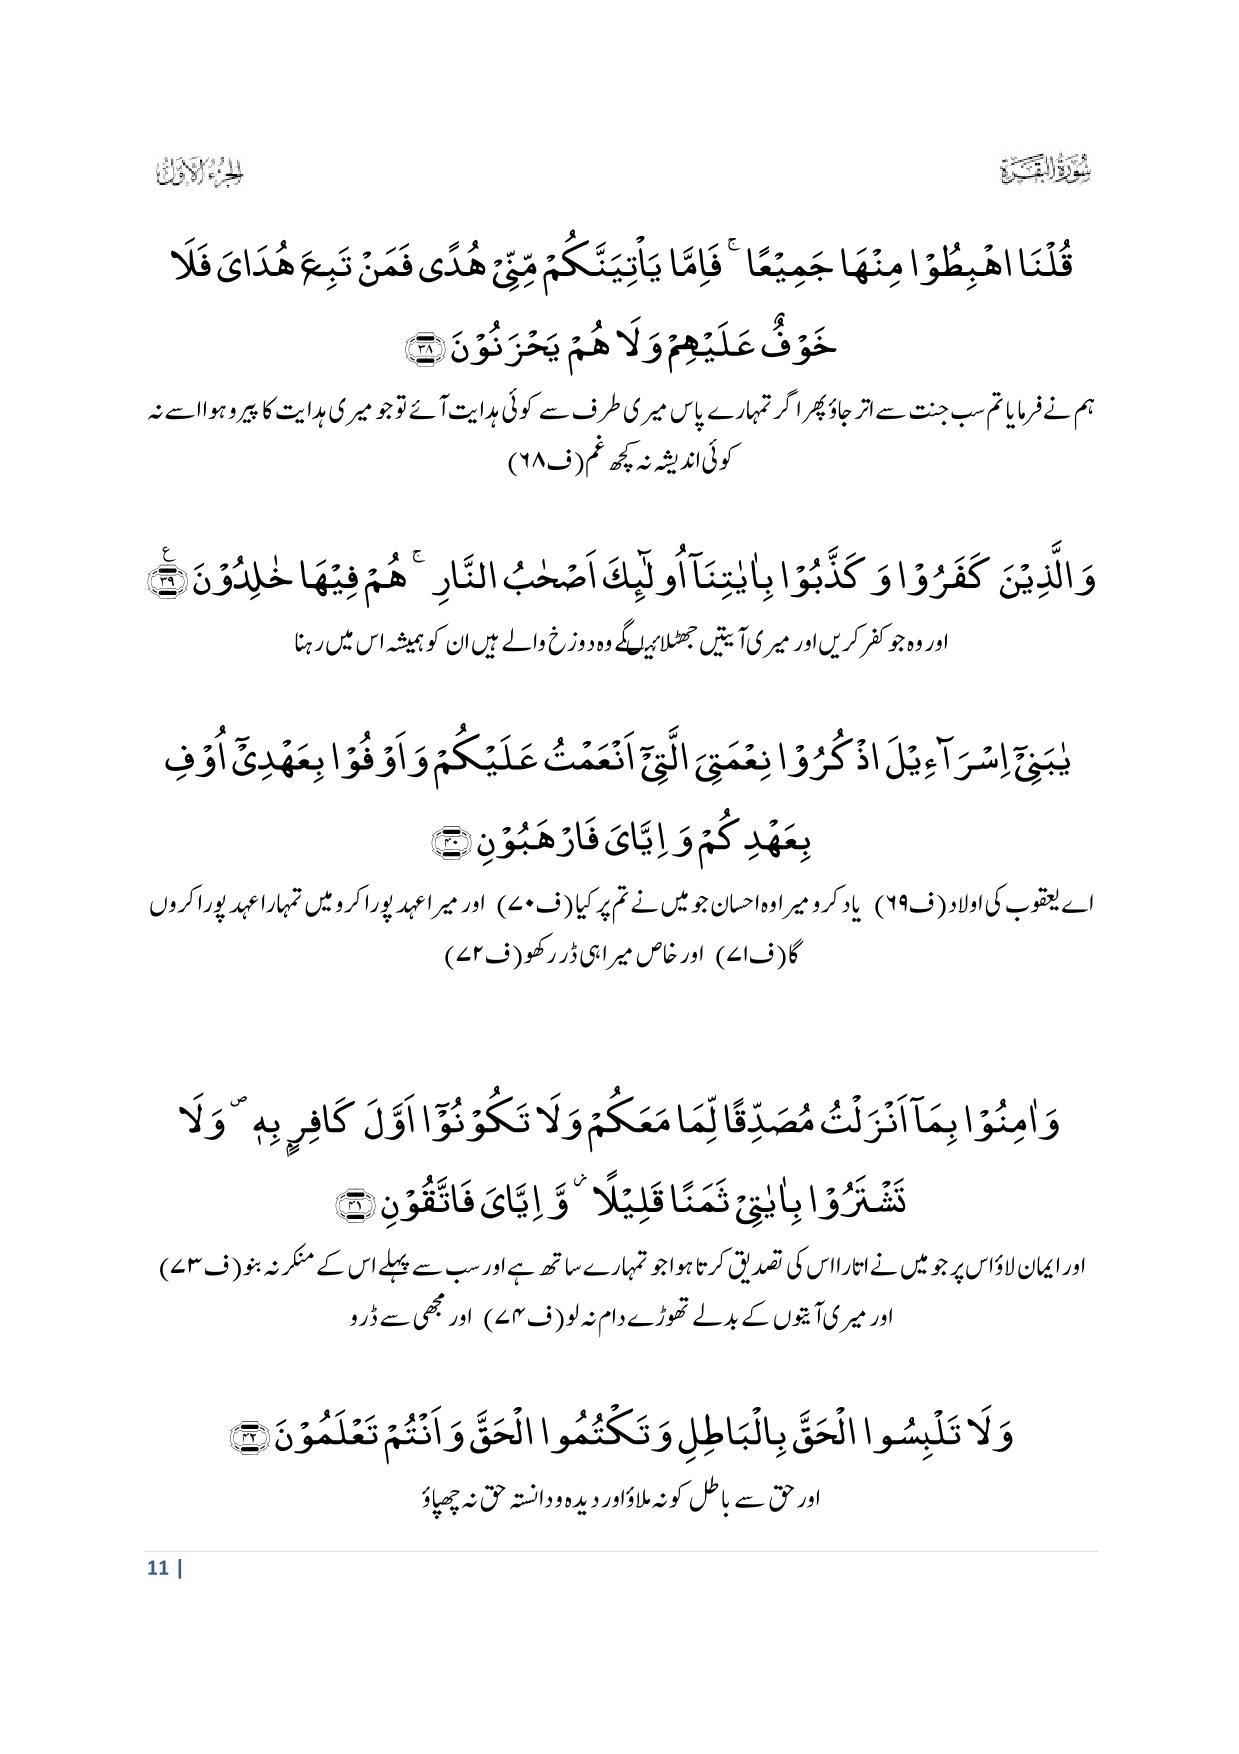 سُوْرَةُ الْبَقَرَة
الجزء الاول
قُلْنَا اهْبِطُوْا مِنْهَا جَمِيْعًا ۚ فَاِمَّا يَاْتِيَنَّكُمْ مِّنِّيْ هُدًى فَمَنْ تَبِعَ هُدَايَ فَلَا
خَوْفٌ عَلَيْهِمْ وَلَا هُمْ يَحْزَنُوْنَ ﴿۳۸﴾
ہم نے فرمایا تم سب جنت سے اتر جاؤ پھر اگر تمہارے پاس میری طرف سے کوئی ہدایت آئے تو جو میری ہدایت کا پیرو ہوا اسے نہ
کوئی اندیشہ نہ کچھ غم (ف۶۸)
وَالَّذِيْنَ كَفَرُوْا وَ كَذَّبُوْا بِاٰيٰتِنَآ اُولٰٓئِكَ اَصْحٰبُ النَّارِ ۚ هُمْ فِيْهَا خٰلِدُوْنَ ﴿۳۹﴾ ع
اور وہ جو کفر کریں اور میری آیتیں جھٹلائیں گے وہ دوزخ والے ہیں ان کو ہمیشہ اس میں رہنا
يٰبَنِيْٓ اِسْرَآءِيْلَ اذْكُرُوْا نِعْمَتِيَ الَّتِيْٓ اَنْعَمْتُ عَلَيْكُمْ وَ اَوْفُوْا بِعَهْدِيْٓ اُوْفِ
بِعَهْدِكُمْ وَ اِيَّايَ فَارْهَبُوْنِ ﴿۴۰﴾
اے یعقوب کی اولاد (ف۶۹) یاد کرو میرا وہ احسان جو میں نے تم پر کیا (ف۷۰) اور میرا عہد پورا کرو میں تمہارا عہد پورا کروں
گا (ف۷۱) اور خاص میرا ہی ڈر رکھو (ف۷۲)
وَاٰمِنُوْا بِمَآ اَنْزَلْتُ مُصَدِّقًا لِّمَا مَعَكُمْ وَلَا تَكُوْنُوْٓا اَوَّلَ كَافِرٍۭ بِهٖ ۪ وَلَا
تَشْتَرُوْا بِاٰيٰتِيْ ثَمَنًا قَلِيْلًا ۫ وَّ اِيَّايَ فَاتَّقُوْنِ ﴿۴۱﴾
اور ایمان لاؤ اس پر جو میں نے اتارا اس کی تصدیق کرتا ہوا جو تمہارے ساتھ ہے اور سب سے پہلے اس کے منکر نہ بنو (ف۷۳)
اور میری آیتوں کے بدلے تھوڑے دام نہ لو (ف۷۴) اور مجھی سے ڈرو
وَلَا تَلْبِسُوا الْحَقَّ بِالْبَاطِلِ وَ تَكْتُمُوا الْحَقَّ وَ اَنْتُمْ تَعْلَمُوْنَ ﴿۴۲﴾
اور حق سے باطل کو نہ ملاؤ اور دیدہ و دانستہ حق نہ چھپاؤ
11 |